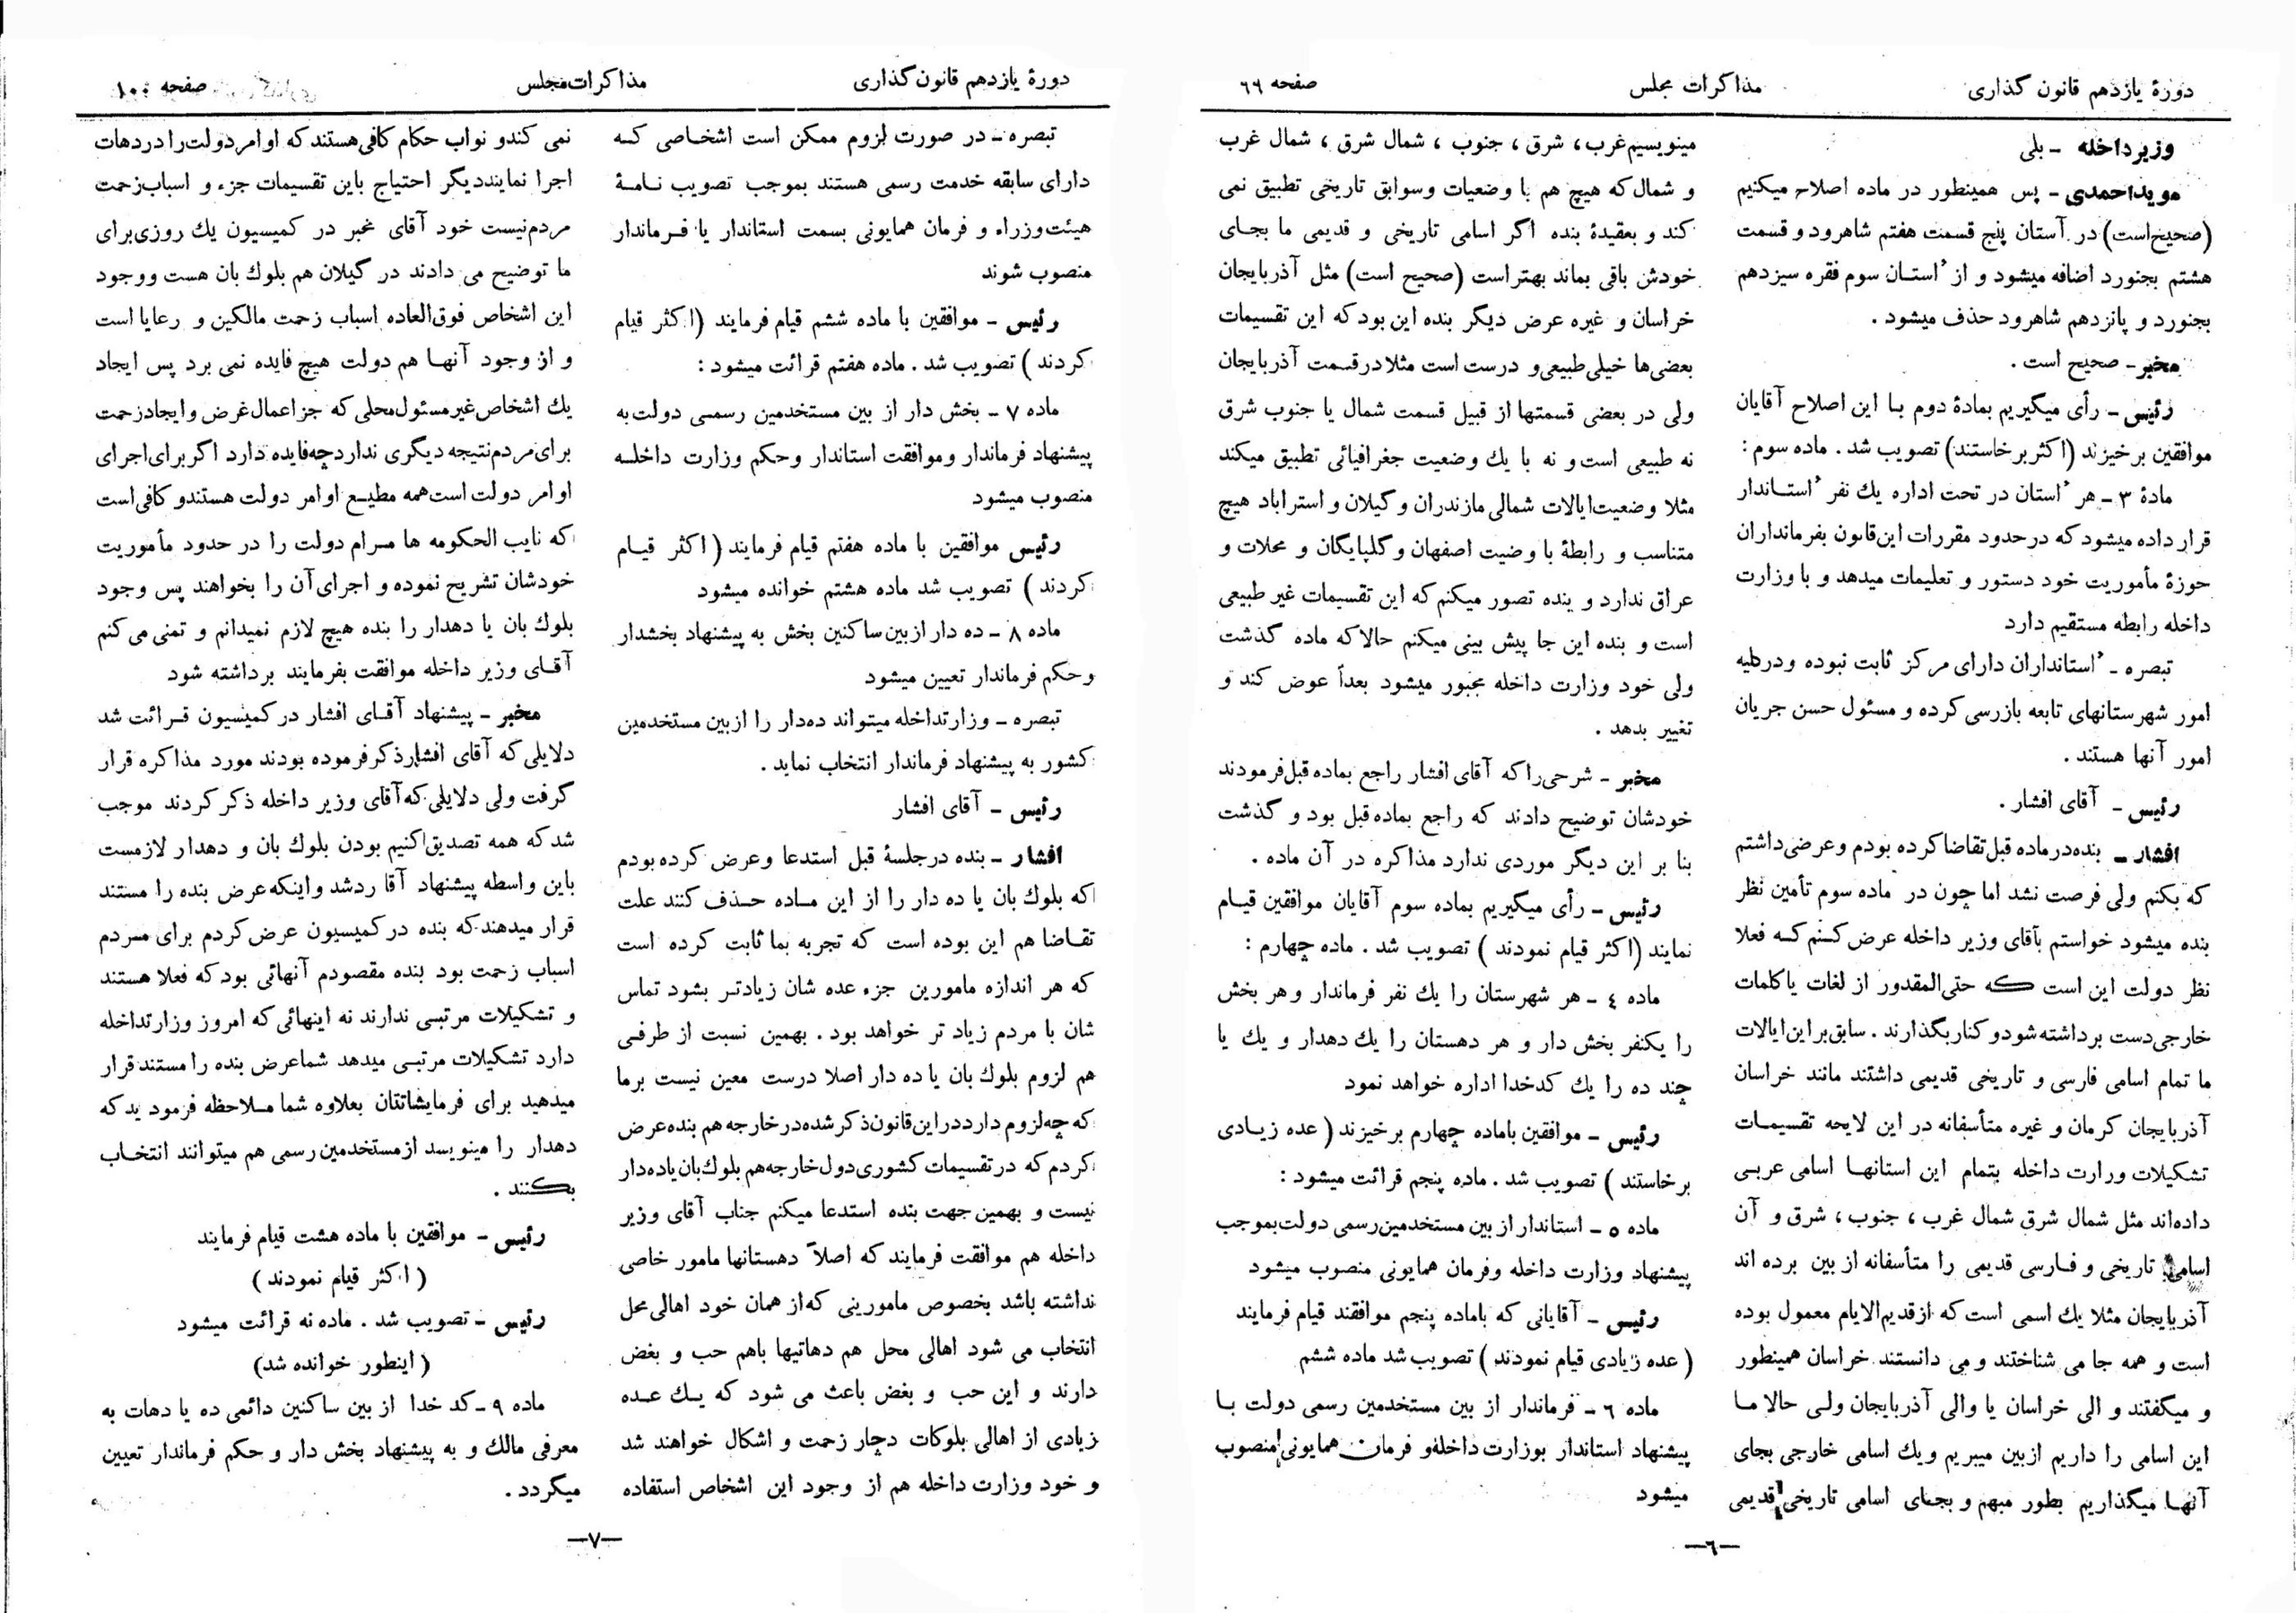 دورهٔ یازدهم قانون گذاری
مذاکرات مجلس
صفحه ٦٦
وزیرداخله - بلی
مویداحمدی - پس همینطور در ماده اصلاح میکنیم
(صحیح‌است) در آستان پنج قسمت هفتم شاهرود و قسمت
هشتم بجنورد اضافه میشود و از اُستان سوم فقره سیزدهم
بجنورد و پانزدهم شاهرود حذف میشود .
مخبر - صحیح است .
رئیس - رأی میگیریم بمادهٔ دوم با این اصلاح آقایان
موافقین برخیزند (اکثر برخاستند) تصویب شد . ماده سوم :
مادهٔ ۳ - هر اُستان در تحت اداره یك نفر اُستاندار
قرار داده میشود که در حدود مقررات این قانون بفرمانداران
حوزهٔ مأموریت خود دستور و تعلیمات میدهد و با وزارت
داخله رابطه مستقیم دارد
تبصره - اُستانداران دارای مرکز ثابت نبوده و در کلیه
امور شهرستانهای تابعه بازرسی کرده و مسئول حسن جریان
امور آنها هستند .
رئیس - آقای افشار .
افشار - بنده در ماده قبل تقاضا کرده بودم و عرضی داشتم
که بکنم ولی فرصت نشد اما چون در ماده سوم تأمین نظر
بنده میشود خواستم بآقای وزیر داخله عرض کنم که فعلا
نظر دولت این است که حتی‌المقدور از لغات یا کلمات
خارجی دست برداشته شود و کنار بگذارند . سابق بر این ایالات
ما تمام اسامی فارسی و تاریخی قدیمی داشتند مانند خراسان
آذربایجان کرمان و غیره متأسفانه در این لایحه تقسیمات
تشکیلات ورارت داخله بتمام این استانها اسامی عربی
داده‌اند مثل شمال شرق شمال غرب ، جنوب ، شرق و آن
اسامی تاریخی و فارسی قدیمی را متأسفانه از بین برده اند
آذربایجان مثلا یك اسمی است که از قدیم‌الایام معمول بوده
است و همه جا می شناختند و می دانستند خراسان همینطور
و میگفتند و الی خراسان یا والی آذربایجان ولی حالا ما
این اسامی را داریم ازبین میبریم ویك اسامی خارجی بجای
آنها میگذاریم بطور مبهم و بجای اسامی تاریخی قدیمی
مینویسیم غرب ، شرق ، جنوب ، شمال شرق ، شمال غرب
و شمال که هیچ هم با وضعیات وسوابق تاریخی تطبیق نمی
کند و بعقیدهٔ بنده اگر اسامی تاریخی و قدیمی ما بجای
خودش باقی بماند بهتر است (صحیح است) مثل آذربایجان
خراسان و غیره عرض دیگر بنده این بود که این تقسیمات
بعضی‌ها خیلی طبیعی و درست است مثلا در قسمت آذربایجان
ولی در بعضی قسمتها از قبیل قسمت شمال یا جنوب شرق
نه طبیعی است و نه با یك وضعیت جغرافیائی تطبیق میکند
مثلا وضعیت ایالات شمالی مازندران و گیلان و استراباد هیچ
متناسب و رابطهٔ با وضیت اصفهان و گلپایگان و محلات و
عراق ندارد و بنده تصور میکنم که این تقسیمات غیر طبیعی
است و بنده این جا پیش بینی میکنم حالا که ماده گذشت
ولی خود وزارت داخله مجبور میشود بعداً عوض کند و
تغییر بدهد .
مخبر - شرحی را که آقای افشار راجع بماده قبل فرمودند
خودشان توضیح دادند که راجع بماده قبل بود و گذشت
بنا بر این دیگر موردی ندارد مذاکره در آن ماده .
رئیس - رأی میگیریم بماده سوم آقایان موافقین قیام
نمایند (اکثر قیام نمودند ) تصویب شد . ماده چهارم :
ماده ٤ - هر شهرستان را یك نفر فرماندار و هر بخش
را یکنفر بخش دار و هر دهستان را یك دهدار و یك یا
چند ده را یك کدخدا اداره خواهد نمود
رئیس - موافقین باماده چهارم برخیزند ( عده زیادی
برخاستند ) تصویب شد . ماده پنجم قرائت میشود :
ماده ٥ - استاندار از بین مستخدمین رسمی دولت بموجب
پیشنهاد وزارت داخله وفرمان همایونی منصوب میشود
رئیس - آقایانی که باماده پنجم موافقند قیام فرمایند
( عده زیادی قیام نمودند ) تصویب شد ماده ششم
ماده ٦ - فرماندار از بین مستخدمین رسمی دولت با
پیشنهاد استاندار بوزارت داخله‌و فرمان همایونی منصوب
میشود
—٦—
دورهٔ یازدهم قانون گذاری
مذاکرات مجلس
صفحه ۱۰۰
تبصره - در صورت لزوم ممکن است اشخاصی که
دارای سابقه خدمت رسمی هستند بموجب تصویب نامهٔ
هیئت وزراء و فرمان همایونی بسمت استاندار یا فرماندار
منصوب شوند
رئیس - موافقین با ماده ششم قیام فرمایند (اکثر قیام
کردند ) تصویب شد . ماده هفتم قرائت میشود :
ماده ۷ - بخش دار از بین مستخدمین رسمی دولت به
پیشنهاد فرماندار و موافقت استاندار وحکم وزارت داخله
منصوب میشود
رئیس موافقین با ماده هفتم قیام فرمایند ( اکثر قیام
کردند ) تصویب شد ماده هشتم خوانده میشود
ماده ۸ - ده دار از بین ساکنین بخش به پیشنهاد بخشدار
و حکم فرماندار تعیین میشود
تبصره - وزارتداخله میتواند ده‌دار را از بین مستخدمین
کشور به پیشنهاد فرماندار انتخاب نماید .
رئیس - آقای افشار
افشار - بنده در جلسهٔ قبل استدعا وعرض کرده بودم
که بلوك بان یا ده دار را از این ماده حذف کنند علت
تقاضا هم این بوده است که تجربه بما ثابت کرده است
که هر اندازه مامورین جزء عده شان زیادتر بشود تماس
شان با مردم زیاد تر خواهد بود . بهمین نسبت از طرفی
هم لزوم بلوك بان یا ده دار اصلا درست معین نیست برما
که چه لزوم دارد در این قانون ذکر شده در خارجه هم بنده عرض
کردم که در تقسیمات کشوری دول خارجه هم بلوك بان یا ده‌دار
نیست و بهمین جهت بنده استدعا میکنم جناب آقای وزیر
داخله هم موافقت فرمایند که اصلاً دهستانها مامور خاصی
نداشته باشد بخصوص مامورینی که از همان خود اهالی محل
انتخاب می شود اهالی محل هم دهاتیها باهم حب و بغض
دارند و این حب و بغض باعث می شود که یك عده
زیادی از اهالی بلوکات دچار زحمت و اشکال خواهند شد
و خود وزارت داخله هم از وجود این اشخاص استفاده
نمی کندو نواب حکام کافی هستند که اوامر دولت را در دهات
اجرا نمایند دیگر احتیاج باین تقسیمات جزء و اسباب زحمت
مردم نیست خود آقای مخبر در کمیسیون یك روزی برای
ما توضیح می دادند در گیلان هم بلوك بان هست ووجود
این اشخاص فوق‌العاده اسباب زحمت مالکین و رعایا است
و از وجود آنها هم دولت هیچ فایده نمی برد پس ایجاد
یك اشخاص غیر مسئول محلی که جز اعمال غرض و ایجاد زحمت
برای مردم نتیجه دیگری ندارد چه فایده دارد اگر برای اجرای
اوامر دولت است همه مطیع اوامر دولت هستندو کافی است
که نایب الحکومه ها مرام دولت را در حدود مأموریت
خودشان تشریح نموده و اجرای آن را بخواهند پس وجود
بلوك بان یا دهدار را بنده هیچ لازم نمیدانم و تمنی می کنم
آقای وزیر داخله موافقت بفرمایند برداشته شود
مخبر - پیشنهاد آقای افشار در کمیسیون قرائت شد
دلایلی که آقای افشار ذکر فرموده بودند مورد مذاکره قرار
گرفت ولی دلایلی که آقای وزیر داخله ذکر کردند موجب
شد که همه تصدیق کنیم بودن بلوك بان و دهدار لازمست
باین واسطه پیشنهاد آقا رد شد و اینکه عرض بنده را مستند
قرار میدهند که بنده در کمیسیون عرض کردم برای مردم
اسباب زحمت بود بنده مقصودم آنهائی بود که فعلا هستند
و تشکیلات مرتبی ندارند نه اینهائی که امروز وزارتداخله
دارد تشکیلات مرتبی میدهد شما عرض بنده را مستند قرار
میدهید برای فرمایشاتتان بعلاوه شما ملاحظه فرمودید که
دهدار را مینویسد از مستخدمین رسمی هم میتوانند انتخاب
بکنند .
رئیس - موافقین با ماده هشت قیام فرمایند
( اکثر قیام نمودند )
رئیس - تصویب شد . ماده نه قرائت میشود
( اینطور خوانده شد)
ماده ۹ - کد خدا از بین ساکنین دائمی ده یا دهات به
معرفی مالك و به پیشنهاد بخش دار و حکم فرماندار تعیین
میگردد .
—۷—